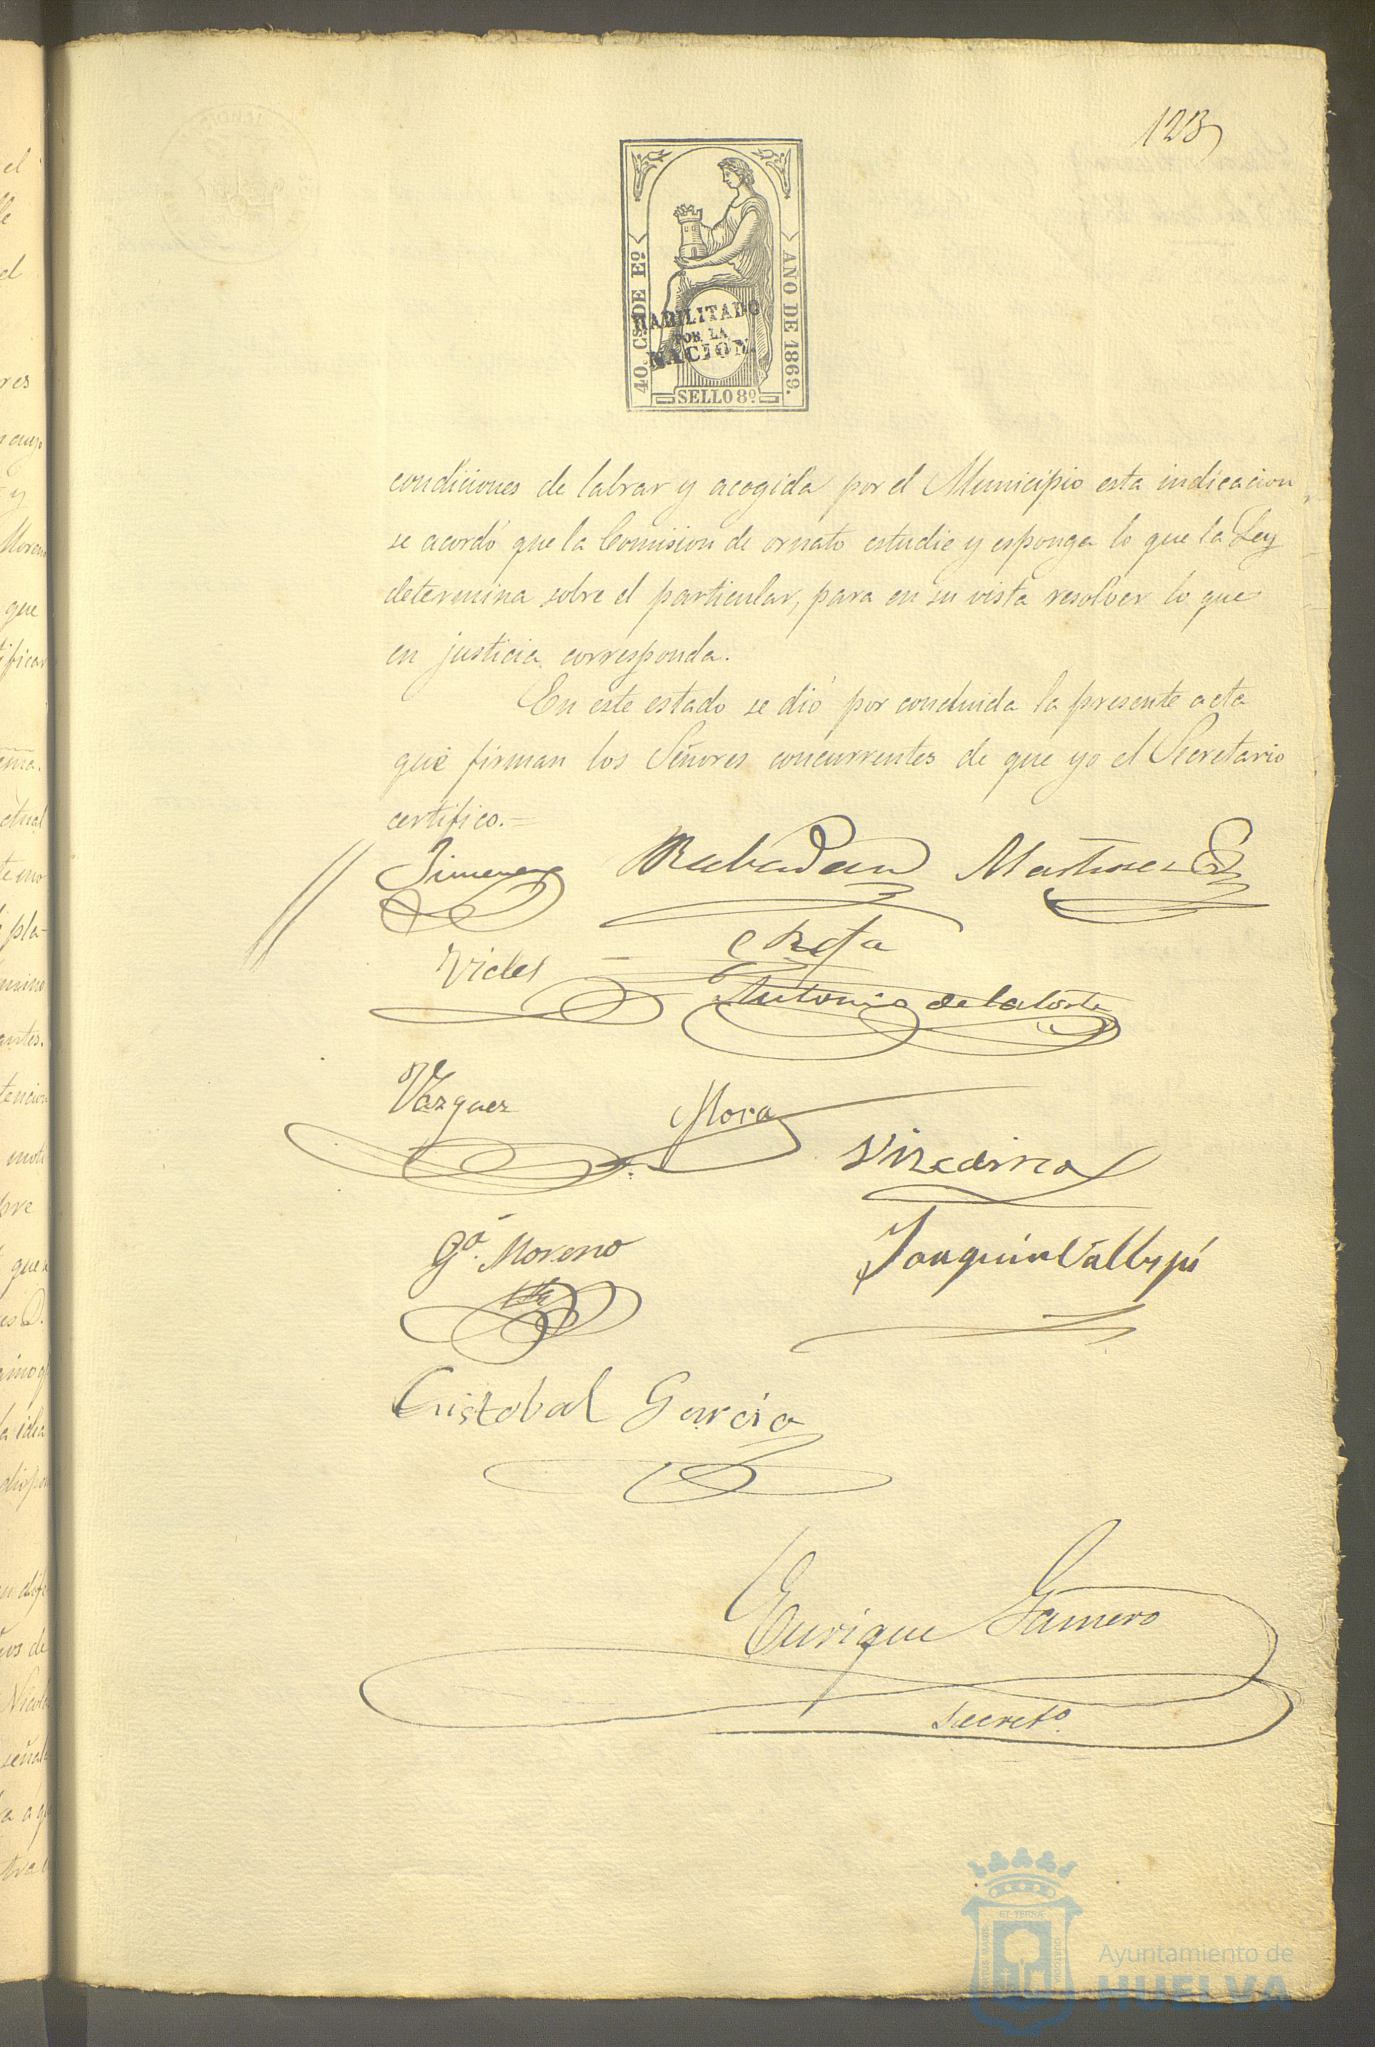 123
40. Cs. DE Eº
AÑO DE 1869.
HABILITADO
POR LA
NACION.
SELLO 8º
condiciones de labrar y acogida por el Municipio esta indicacion
se acordó que la Comision de ornato estudie y esponga lo que la Ley
determina sobre el particular, para en su vista resolver lo que
en justicia corresponda.
En este estado se dió por concluida la presente acta
que firman los Señores concurrentes de que yo el Secretario
certifico.=
Jimenez Rabadan Martinez
Antonio de la Corte
Vazquez Mora
Gª. Moreno
Joaquin Vallejo
Cristobal Garcia
Enrique Gamero
Secretº.
Ayuntamiento de
HUELVA